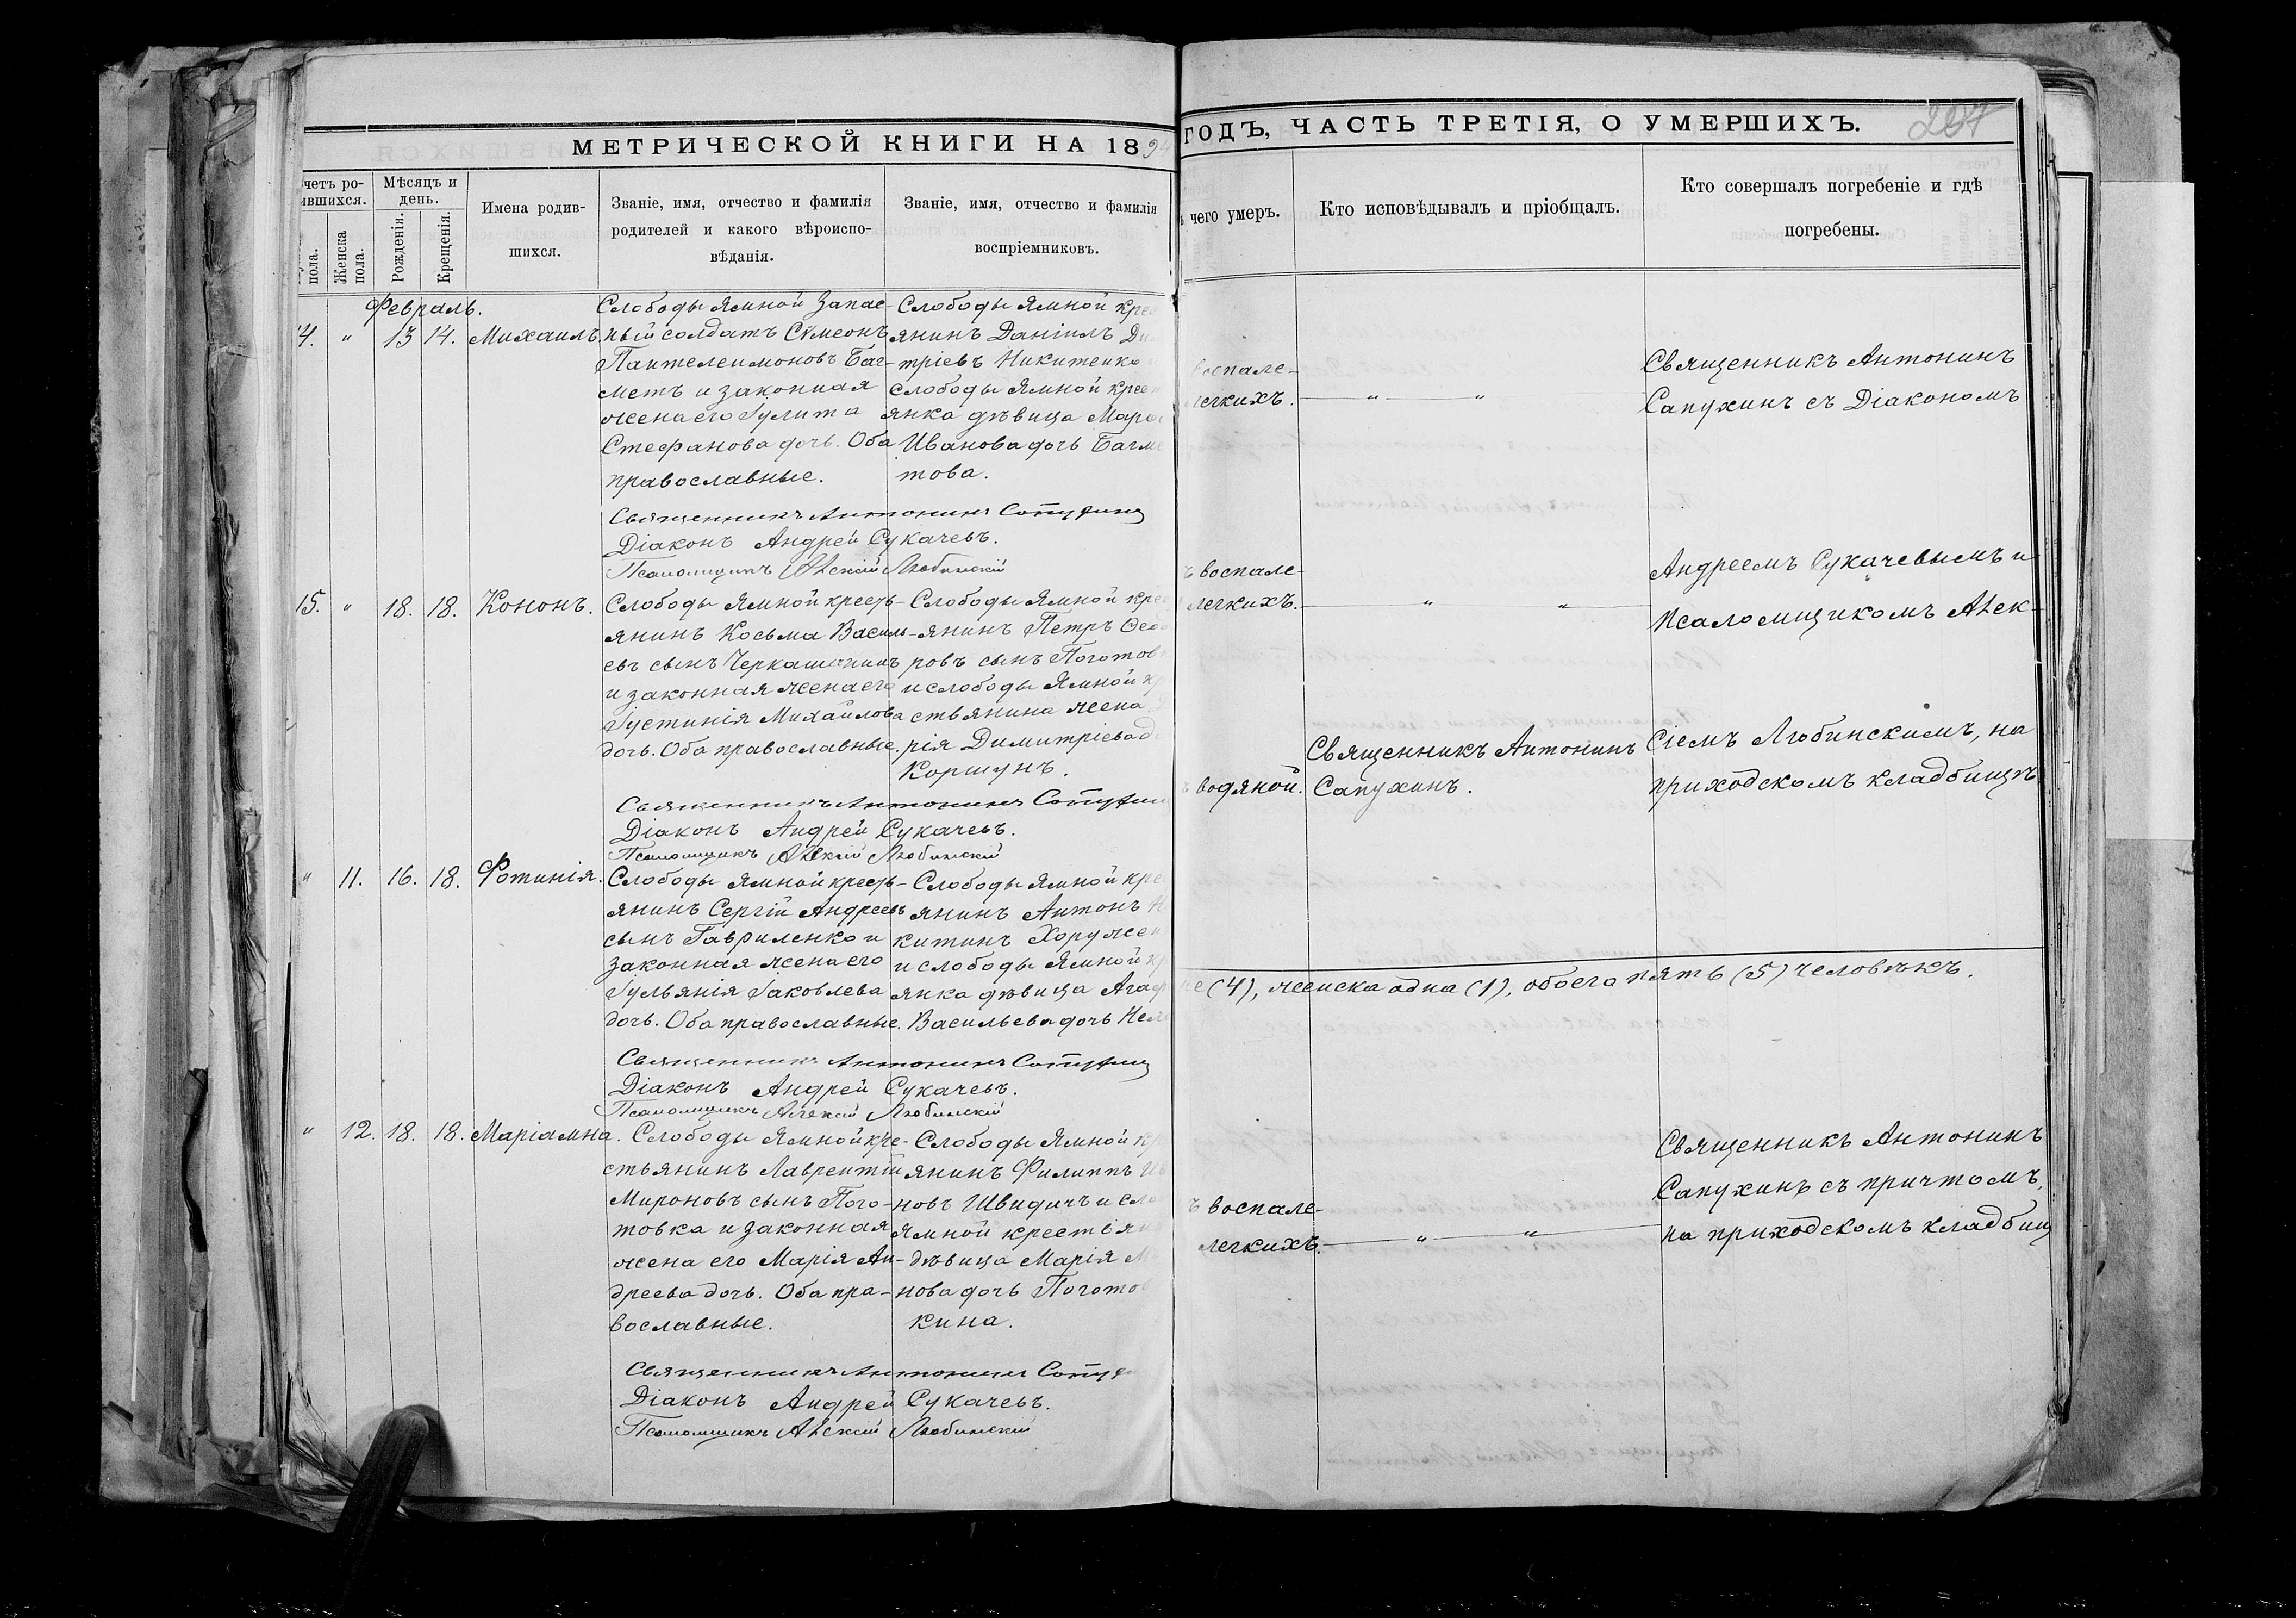 МЕТРИЧЕСКОЙ КНИГИ НА 189
четъ ро-
ившихся.
пола.
Женска пола.
Мѣсяцъ и день.
Рожденія.
Крещенія.
Имена родив-
шихся.
Званіе, имя, отчество и фамилія
родителей и какого вѣроиспо-
вѣданія.
Званіе, имя, отчество и фамилія
воспріемниковъ.
Февраль.
14. " 13 14. Михаилъ.
Слободы Ямной запас-
ный солдатъ Сѵмеонъ
Пантелеимоновъ Баг-
метъ и законная
жена его Іулита
Стефанова дочь. Оба
православные.
Слободы Ямной кре
янинъ Даніилъ Ди
тріевъ Никитенко
слободы Ямной крест
янка дѣвица Мар
Иванова дочь Багме
това.
Священникъ Антонинъ Сапухинъ
Діаконъ Андрей Сукачевъ.
Псаломщикъ Алексій Любинскій
15. " 18. 18. Кононъ.
Слободы Ямной кресть-
янинъ Косьма Василь-
евъ сынъ Черкашенинъ
и законная жена его
Іустинія Михайлова
дочь. Оба православные.
Слободы Ямной кре
янинъ Петръ Ѳеодо
ровъ сынъ Поготов
и слободы Ямной к
стьянина жена
рія Димитріева д
Коршунъ.
Священникъ Антонинъ Сапухин
Діаконъ Андрей Сукачевъ.
Псаломщикъ Алексій Любинскій
" 11. 16. 18. Фотинія.
Слободы Ямной кресть-
янинъ Сергій Андреевъ
сынъ Гавриленко и
законная жена его
Іульянія Іаковлева
дочь. Оба православные.
Слободы Ямной кре
янинъ Антонъ Н
китинъ Хоружен
и слободы Ямной к
янка дѣвица Агаф
Васильева дочь
Священникъ Антонинъ Сапухинъ
Діаконъ Андрей Сукачевъ.
Псаломщикъ Алексій Любинскій
" 12. 18. 18. Маріамна.
Слободы Ямной кре-
стьянинъ Лаврентій
Мироновъ сынъ Пого-
товка и законная
жена его Марія Ан-
дреева дочь. Оба пра-
вославные.
Слободы Ямной к
янинъ Филиппъ И
новъ Швидичъ и сло
Ямной крестьян
дѣвица Марія М
нова дочь Поготов
кина.
Священникъ Антонинъ Сапух
Діаконъ Андрей Сукачевъ.
Псаломщикъ Алексій Любинскій
ГОДЪ, ЧАСТЬ ТРЕТІЯ, О УМЕРШИХЪ.
207
чего умеръ.
Кто исповѣдывалъ и пріобщалъ.
Кто совершалъ погребеніе и гдѣ
погребены.
воспале-
легкихъ. " "
Священникъ Антонинъ
Сапухинъ съ Діакономъ
ъ воспале-
легкихъ. " "
Андреемъ Сукачевымъ и
Псаломщикомъ Алек-
ъ водяной.
Священникъ Антонинъ
Сапухинъ.
сіемъ Любинскимъ, на
приходскомъ кладбищѣ
ре (4), женска одна (1), обоего пять (5) человѣкъ.
ъ воспале-
легкихъ. " "
Священникъ Антонинъ
Сапухинъ съ причтомъ,
на приходскомъ кладбищ